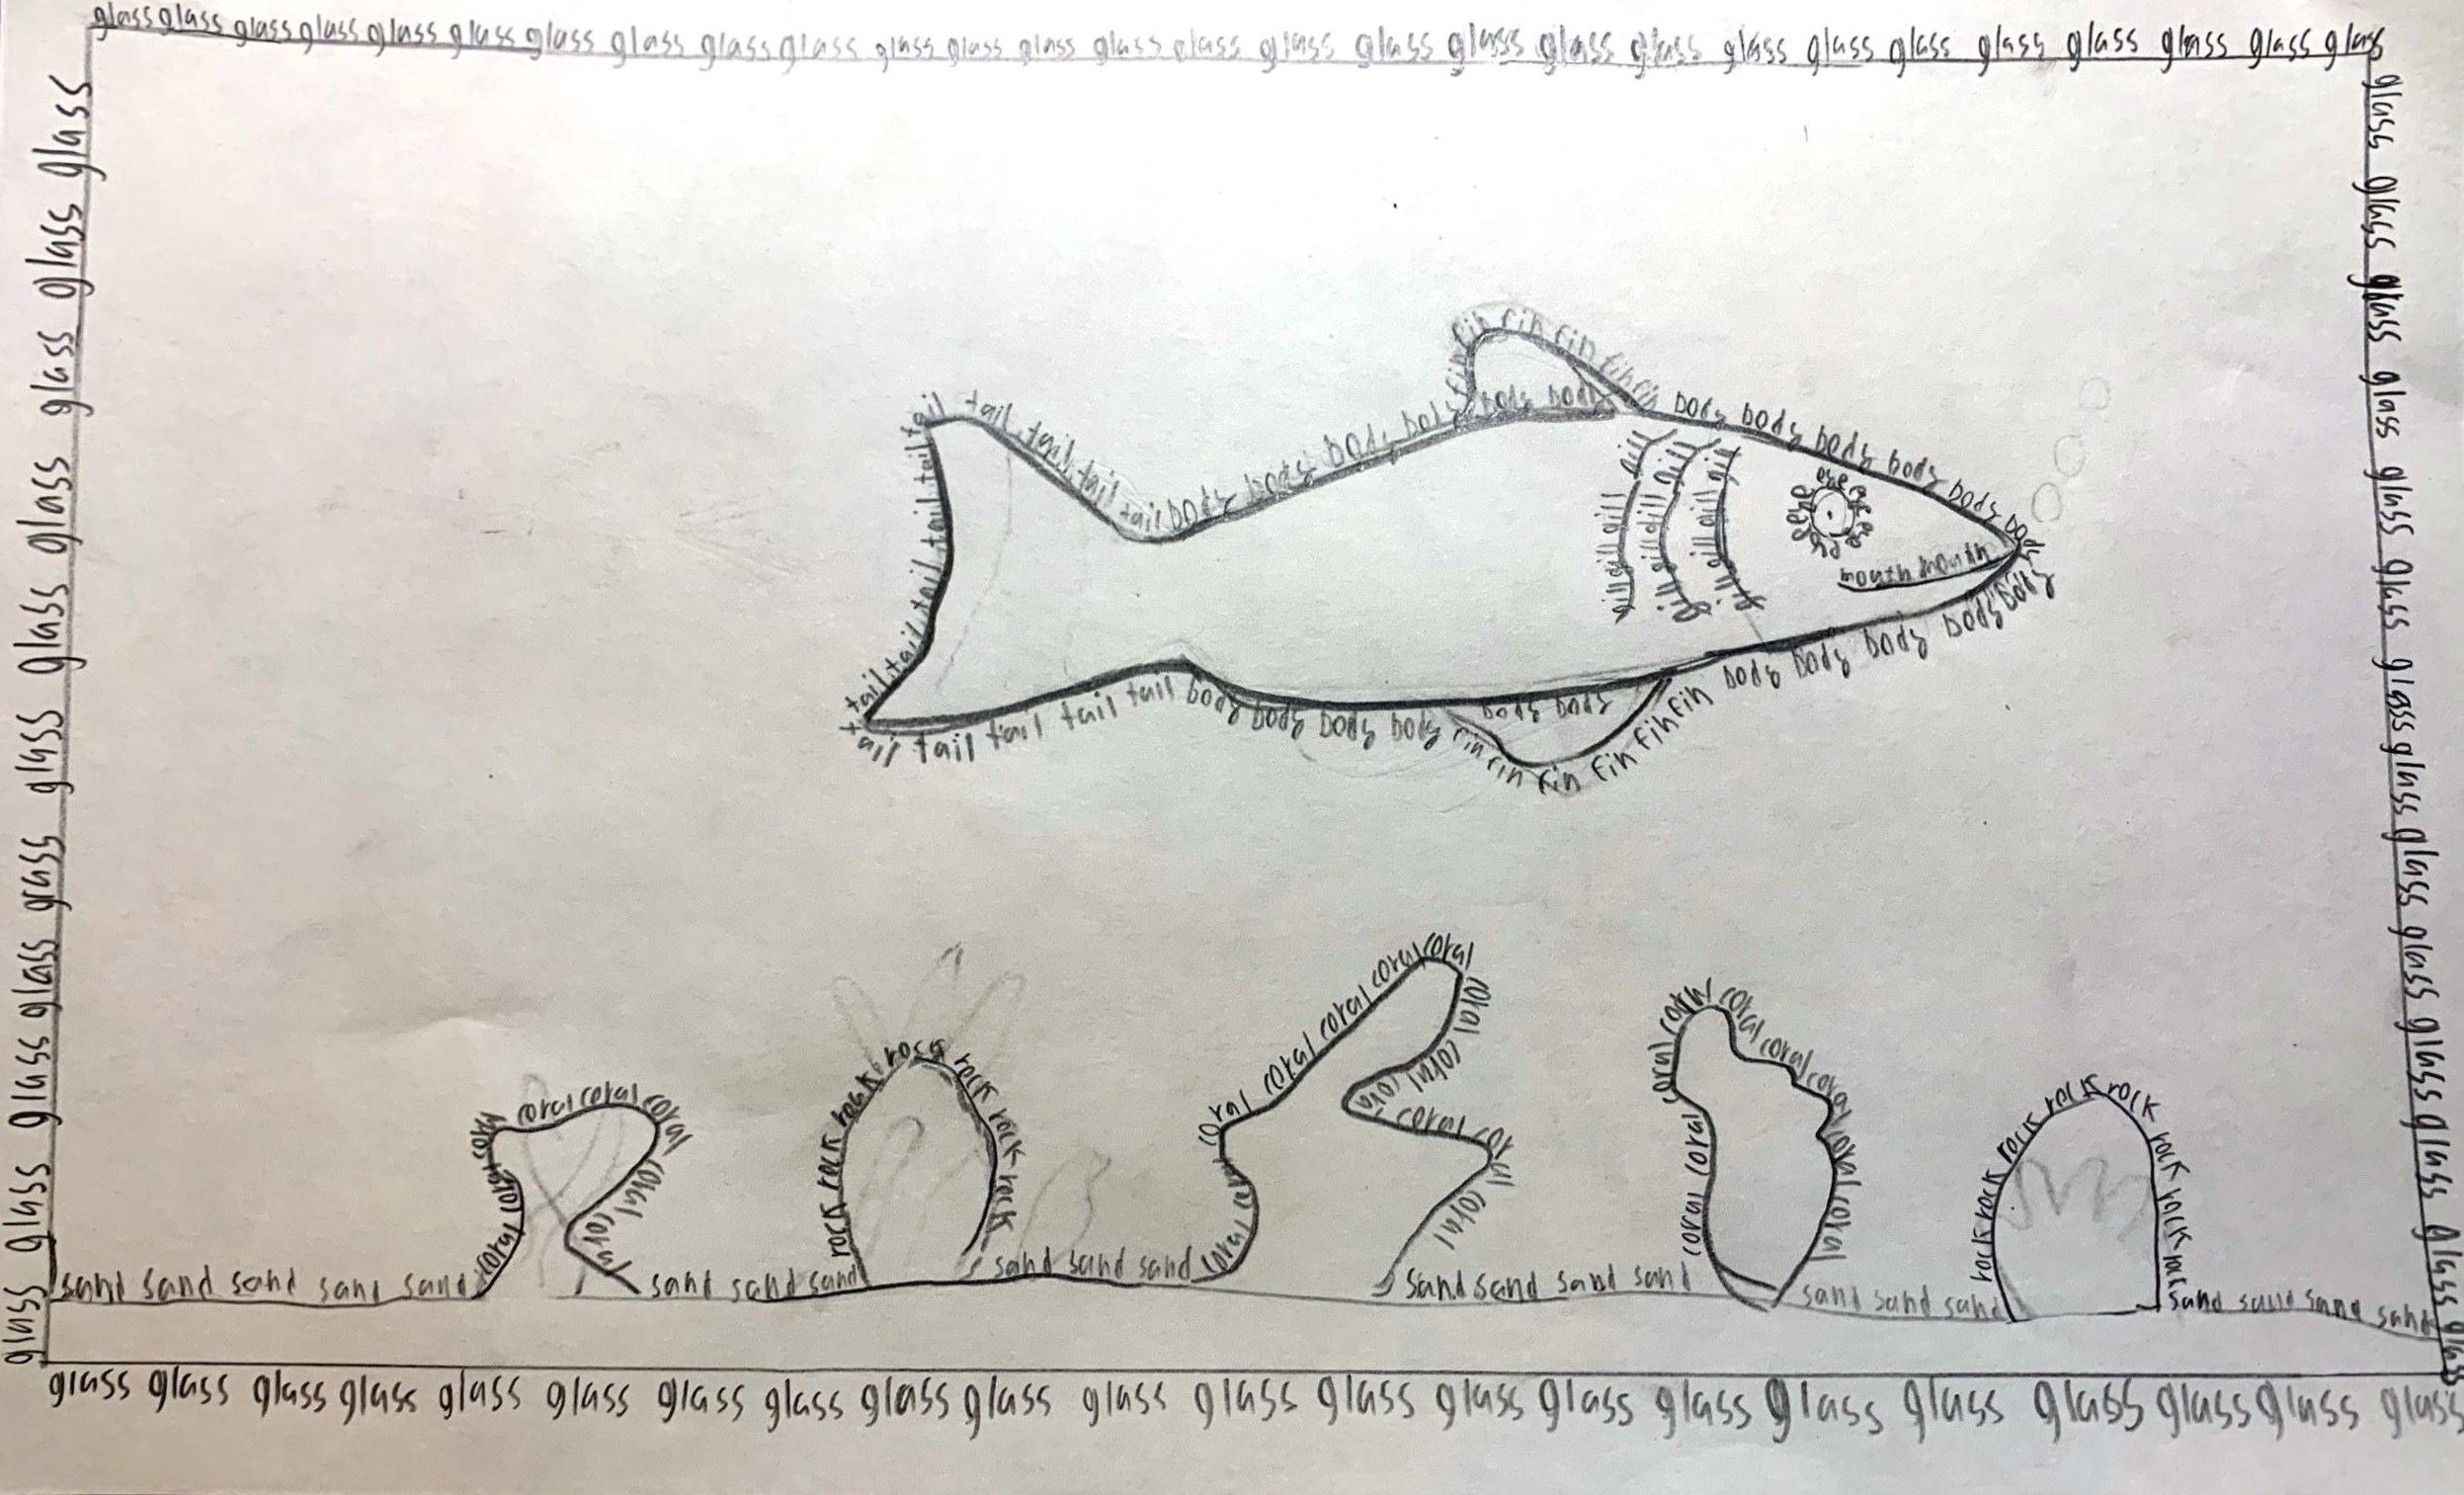 glass glass glass glass glass glass glass glass glass glass glass glass glass glass glass glass glass glass glass glass glass glass glass glass glass glass glass glass
glass glass glass glass grass glass glass glass glass glass glass
glass glass glass glass glass glass glass glass glass glass glass glass glass glass
fin fin fin fin fin fin
tail tail tail tail tail body body body body body body body body body body body body body
tail tail tail tail tail tail
gill gill gill
gill gill gill
gill gill gill
eye eye eye eye eye eye
mouth mouth
tail tail tail tail tail body body body body body body body body body body body
fin fin fin fin fin fin
sand sand sand sand sand
coral coral coral coral coral coral coral coral
sand sand sand
rock rock rock rock rock rock rock rock
sand sand sand
coral coral coral coral coral coral coral coral coral coral coral coral coral
sand sand sand sand
coral coral coral coral coral coral coral coral coral coral
sand sand sand
rock rock rock rock rock rock rock rock
sand sand sand sand
glass glass glass glass glass glass glass glass glass glass glass glass glass glass glass glass glass glass glass glass glass glass